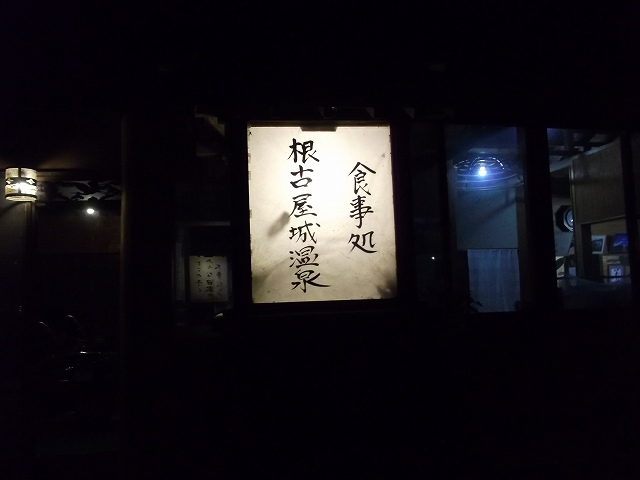 食事処
根古屋城温泉